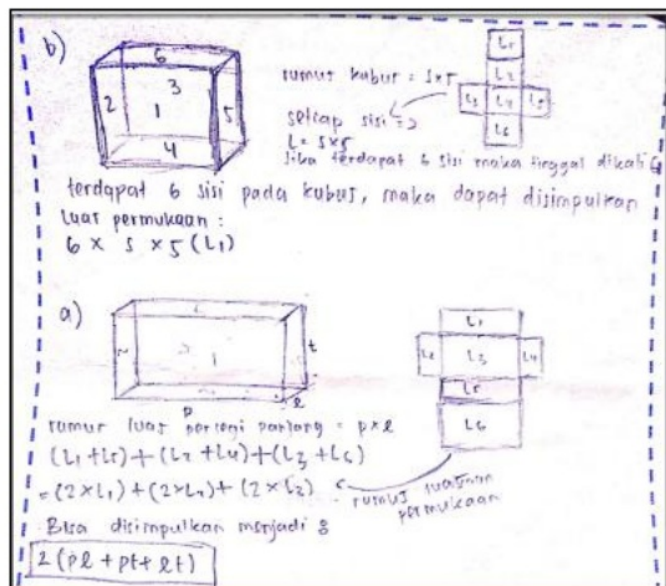 b)
6
3
2 1 5
4
rumus kubus = s x s
setiap sisi =>
L = s x s
Jika terdapat 6 sisi maka tinggal dikali 6
L1
L2
L3 L4 L5
L6
terdapat 6 sisi pada kubus, maka dapat disimpulkan
Luas permukaan :
6 x s x s (L1)
a)
1
t
p
l
L1
L2 L3 L4
L5
L6
rumus luas persegi panjang = p x l
(L1 + L5) + (L2 + L4) + (L3 + L6)
= (2 x L1) + (2 x L2) + (2 x L3)
rumus luas
permukaan
Bisa disimpulkan menjadi :
2 (pl + pt + lt)